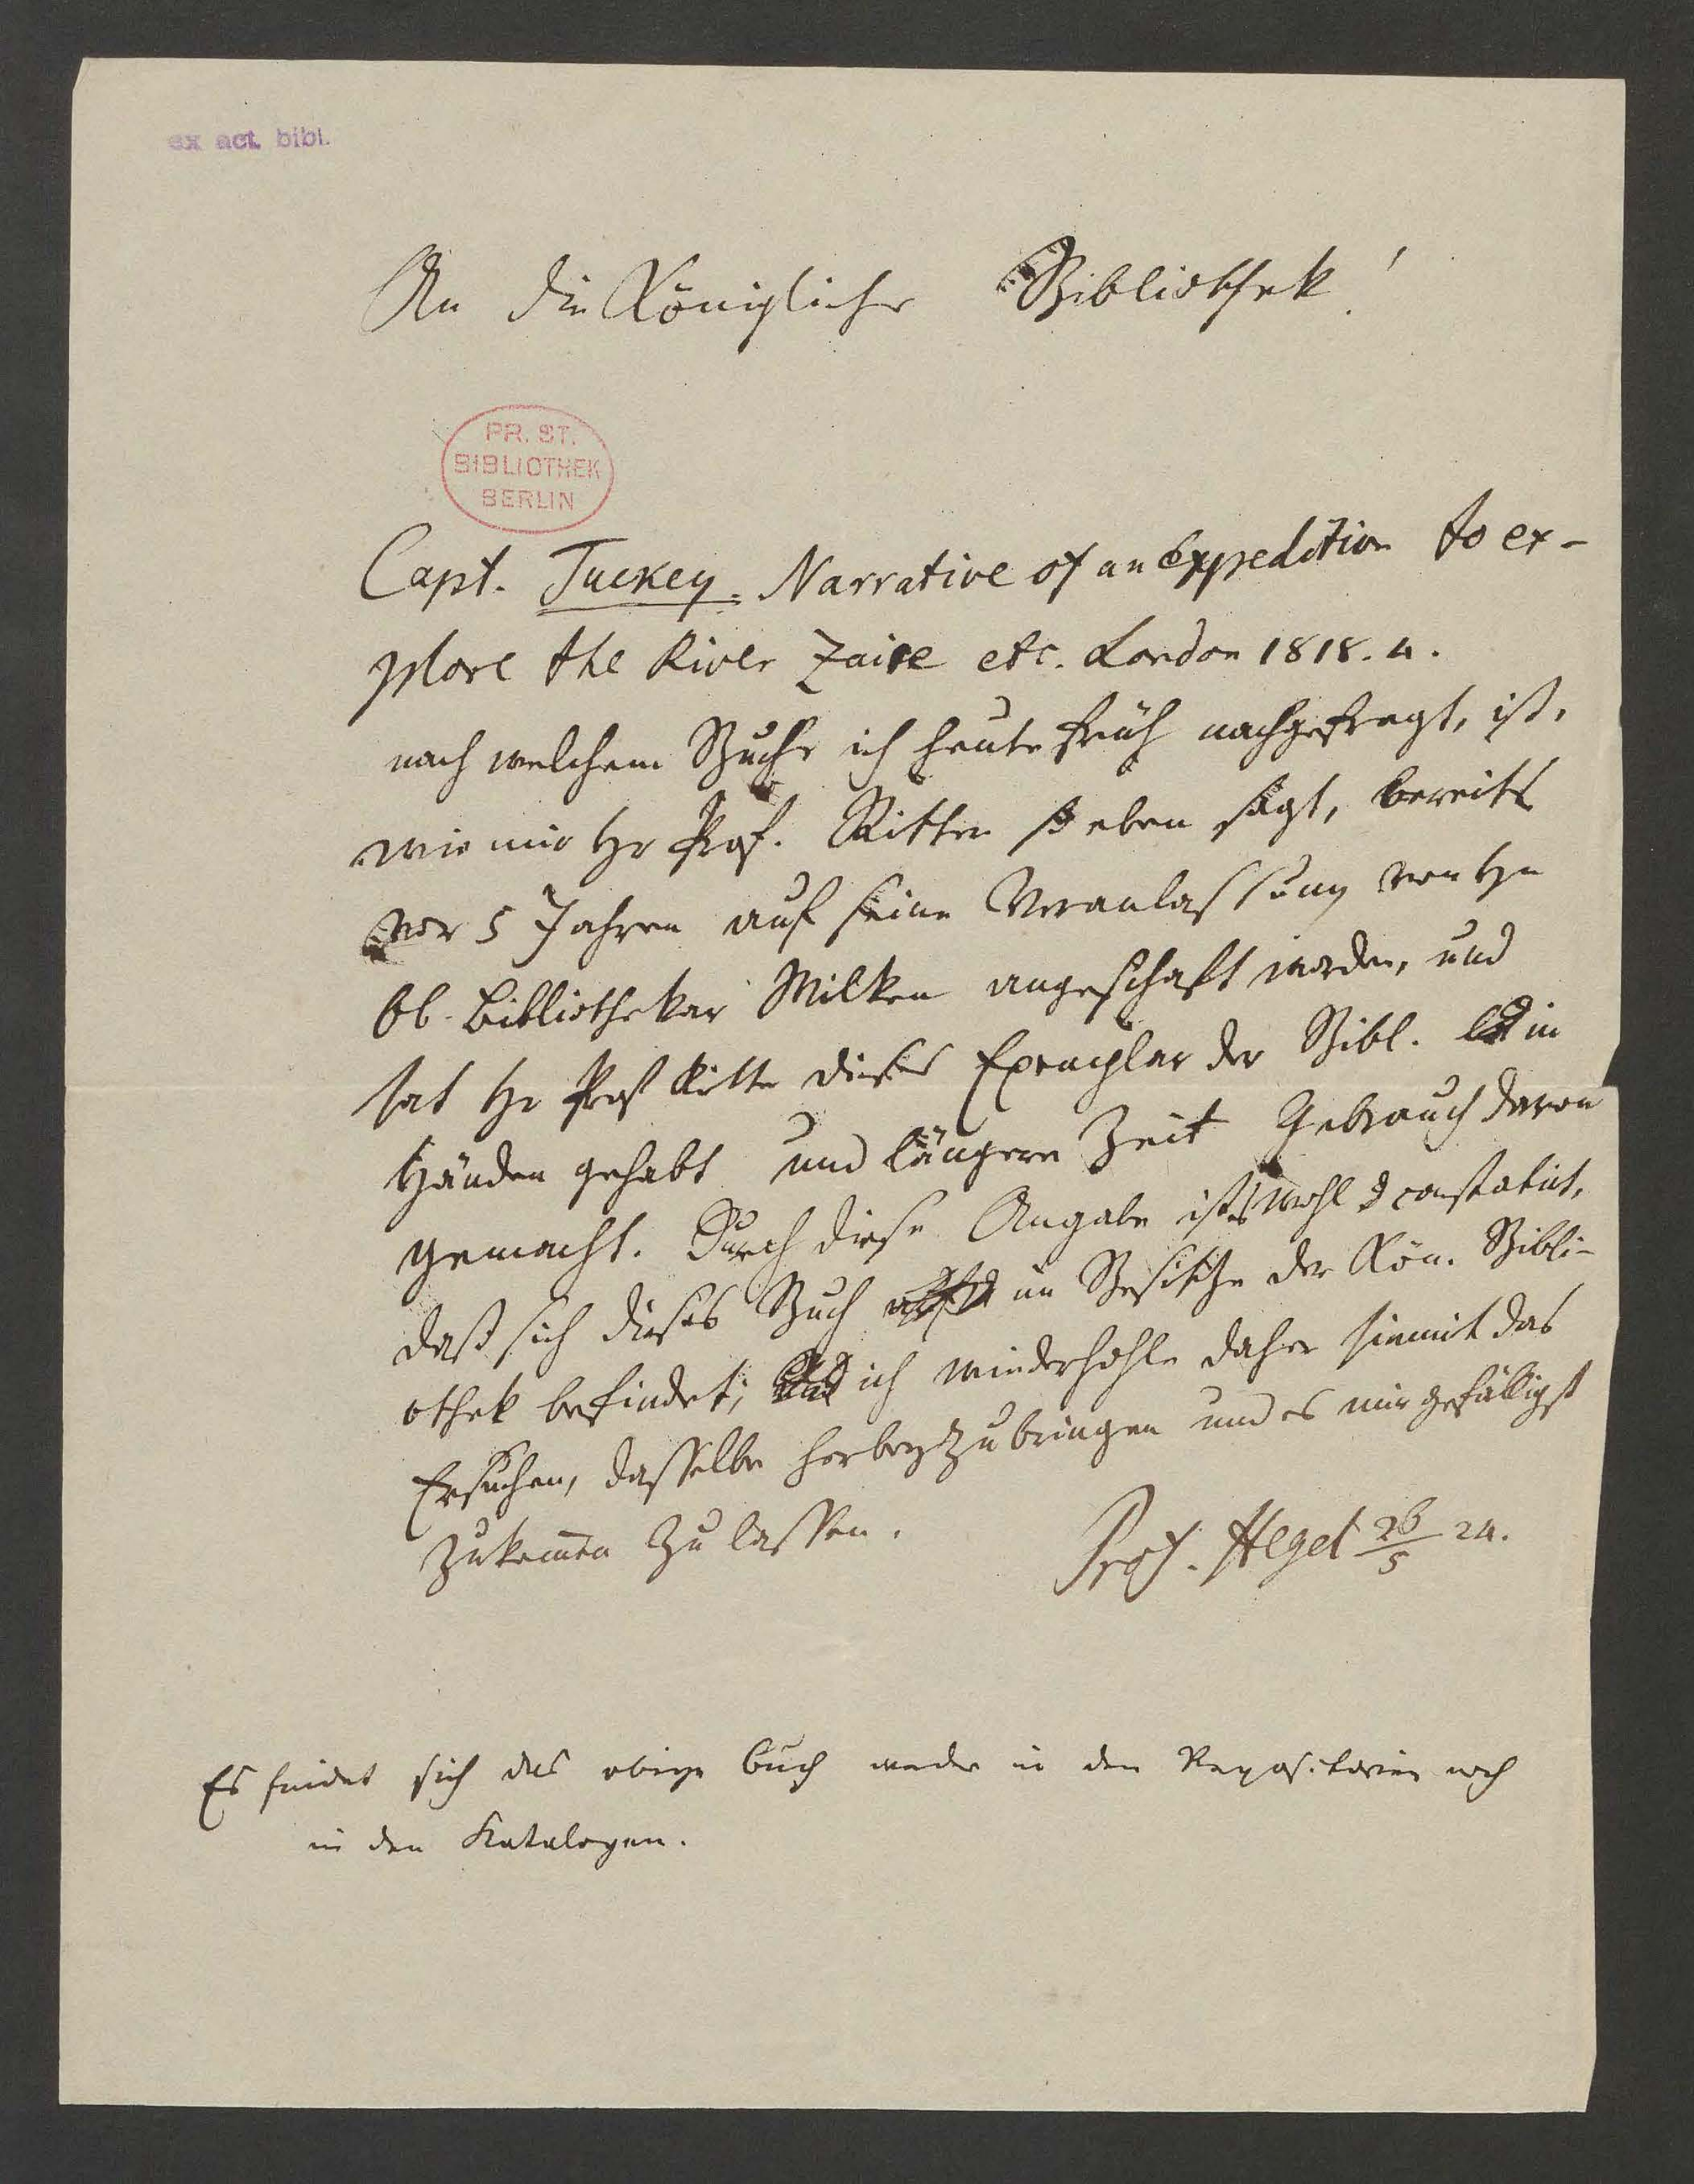 ex act. bibl.
An die Königliche Bibliothek!
PR. ST.
BIBLIOTHEK
BERLIN
Capt. Tuckey. Narrative of an Expedition to ex-
plore the River Zaire etc. London 1818. 4.
nach welchem Buche ich heute früh nachgefragt, ist,
wie mir Hr Prof. Ritter so eben sagt, bereits
vor 5 Jahren auf seine Veranlassung von Hn
Ob. Bibliothekar Wilken angeschafft worden, und
hat Hr Prof Ritter dieses Exemplar der Bibl. in
Händen gehabt und längere Zeit Gebrauch davon
gemacht. Durch diese Angabe ists wohl constatirt,
daß sich dieses Buch im Besitze der Kön. Bibli-
othek befindet; ich wiederhohle daher hiemit das
Ersuchen, dasselbe herbeyzubringen und es mir gefälligst
zukommen zu lassen.
Prof. Hegel 26/5 24.
Es findet sich das obige Buch weder in den Repositorien noch
in den Katalogen.